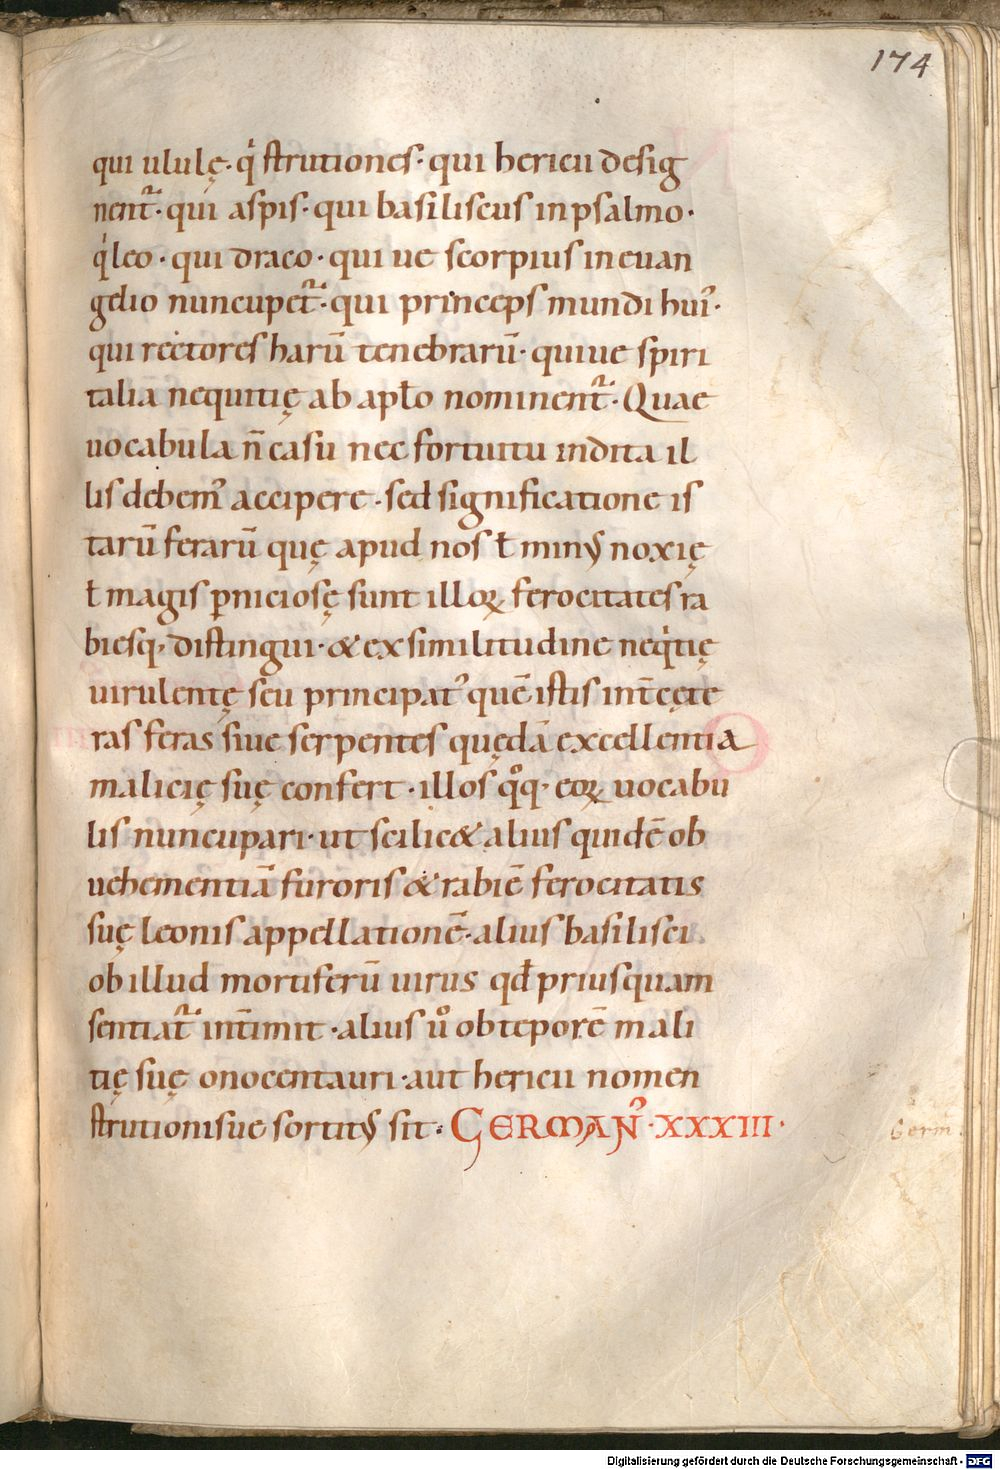 174
qui ululę· qͥ strutiones· qui hericii desig
nent᷑· qui aspis· qui basiliscus in psalmo·
qͥ leo· qui draco· qui ue scorpius in euan
gelio nuncupet᷑· qui princeps mundi huiꝰ·
qui rectores harū tenebrarū· qui ue spiri
talia nequitię ab apƚo nominent᷑· Quae
uocabula n̄ casu nec fortuitu indita il
lis debemꝰ accipere· sed significatione is
tarū ferarū quę apud nos ƚ minꝰ noxię
ƚ magis ꝑniciosę sunt illoꝝ ferocitates ra
biesq· distingui· & ex similitudine neqͥtię
uirulentę seu principatꝰ quē istis int̄ cęte
ras feras siue serpentes quędā excellentia
malicię suę confert· illos qͦq· eoꝝ uocabu
lis nuncupari· ut scilic& alius quidē ob
uehementiā furoris & rabiē ferocitatis
suę leonis appellationē· alius basilisci
ob illud mortiferū uirus qđ priusquam
sentiat᷑ int̄imit· alius uͦ ob teporē mali
tię suę onocentauri· aut hericii nomen
strutionisue sortitꝰ sit· GERMANꝰ· XXXIII·
Germ.
Digitalisierung gefördert durch die Deutsche Forschungsgemeinschaft - DFG